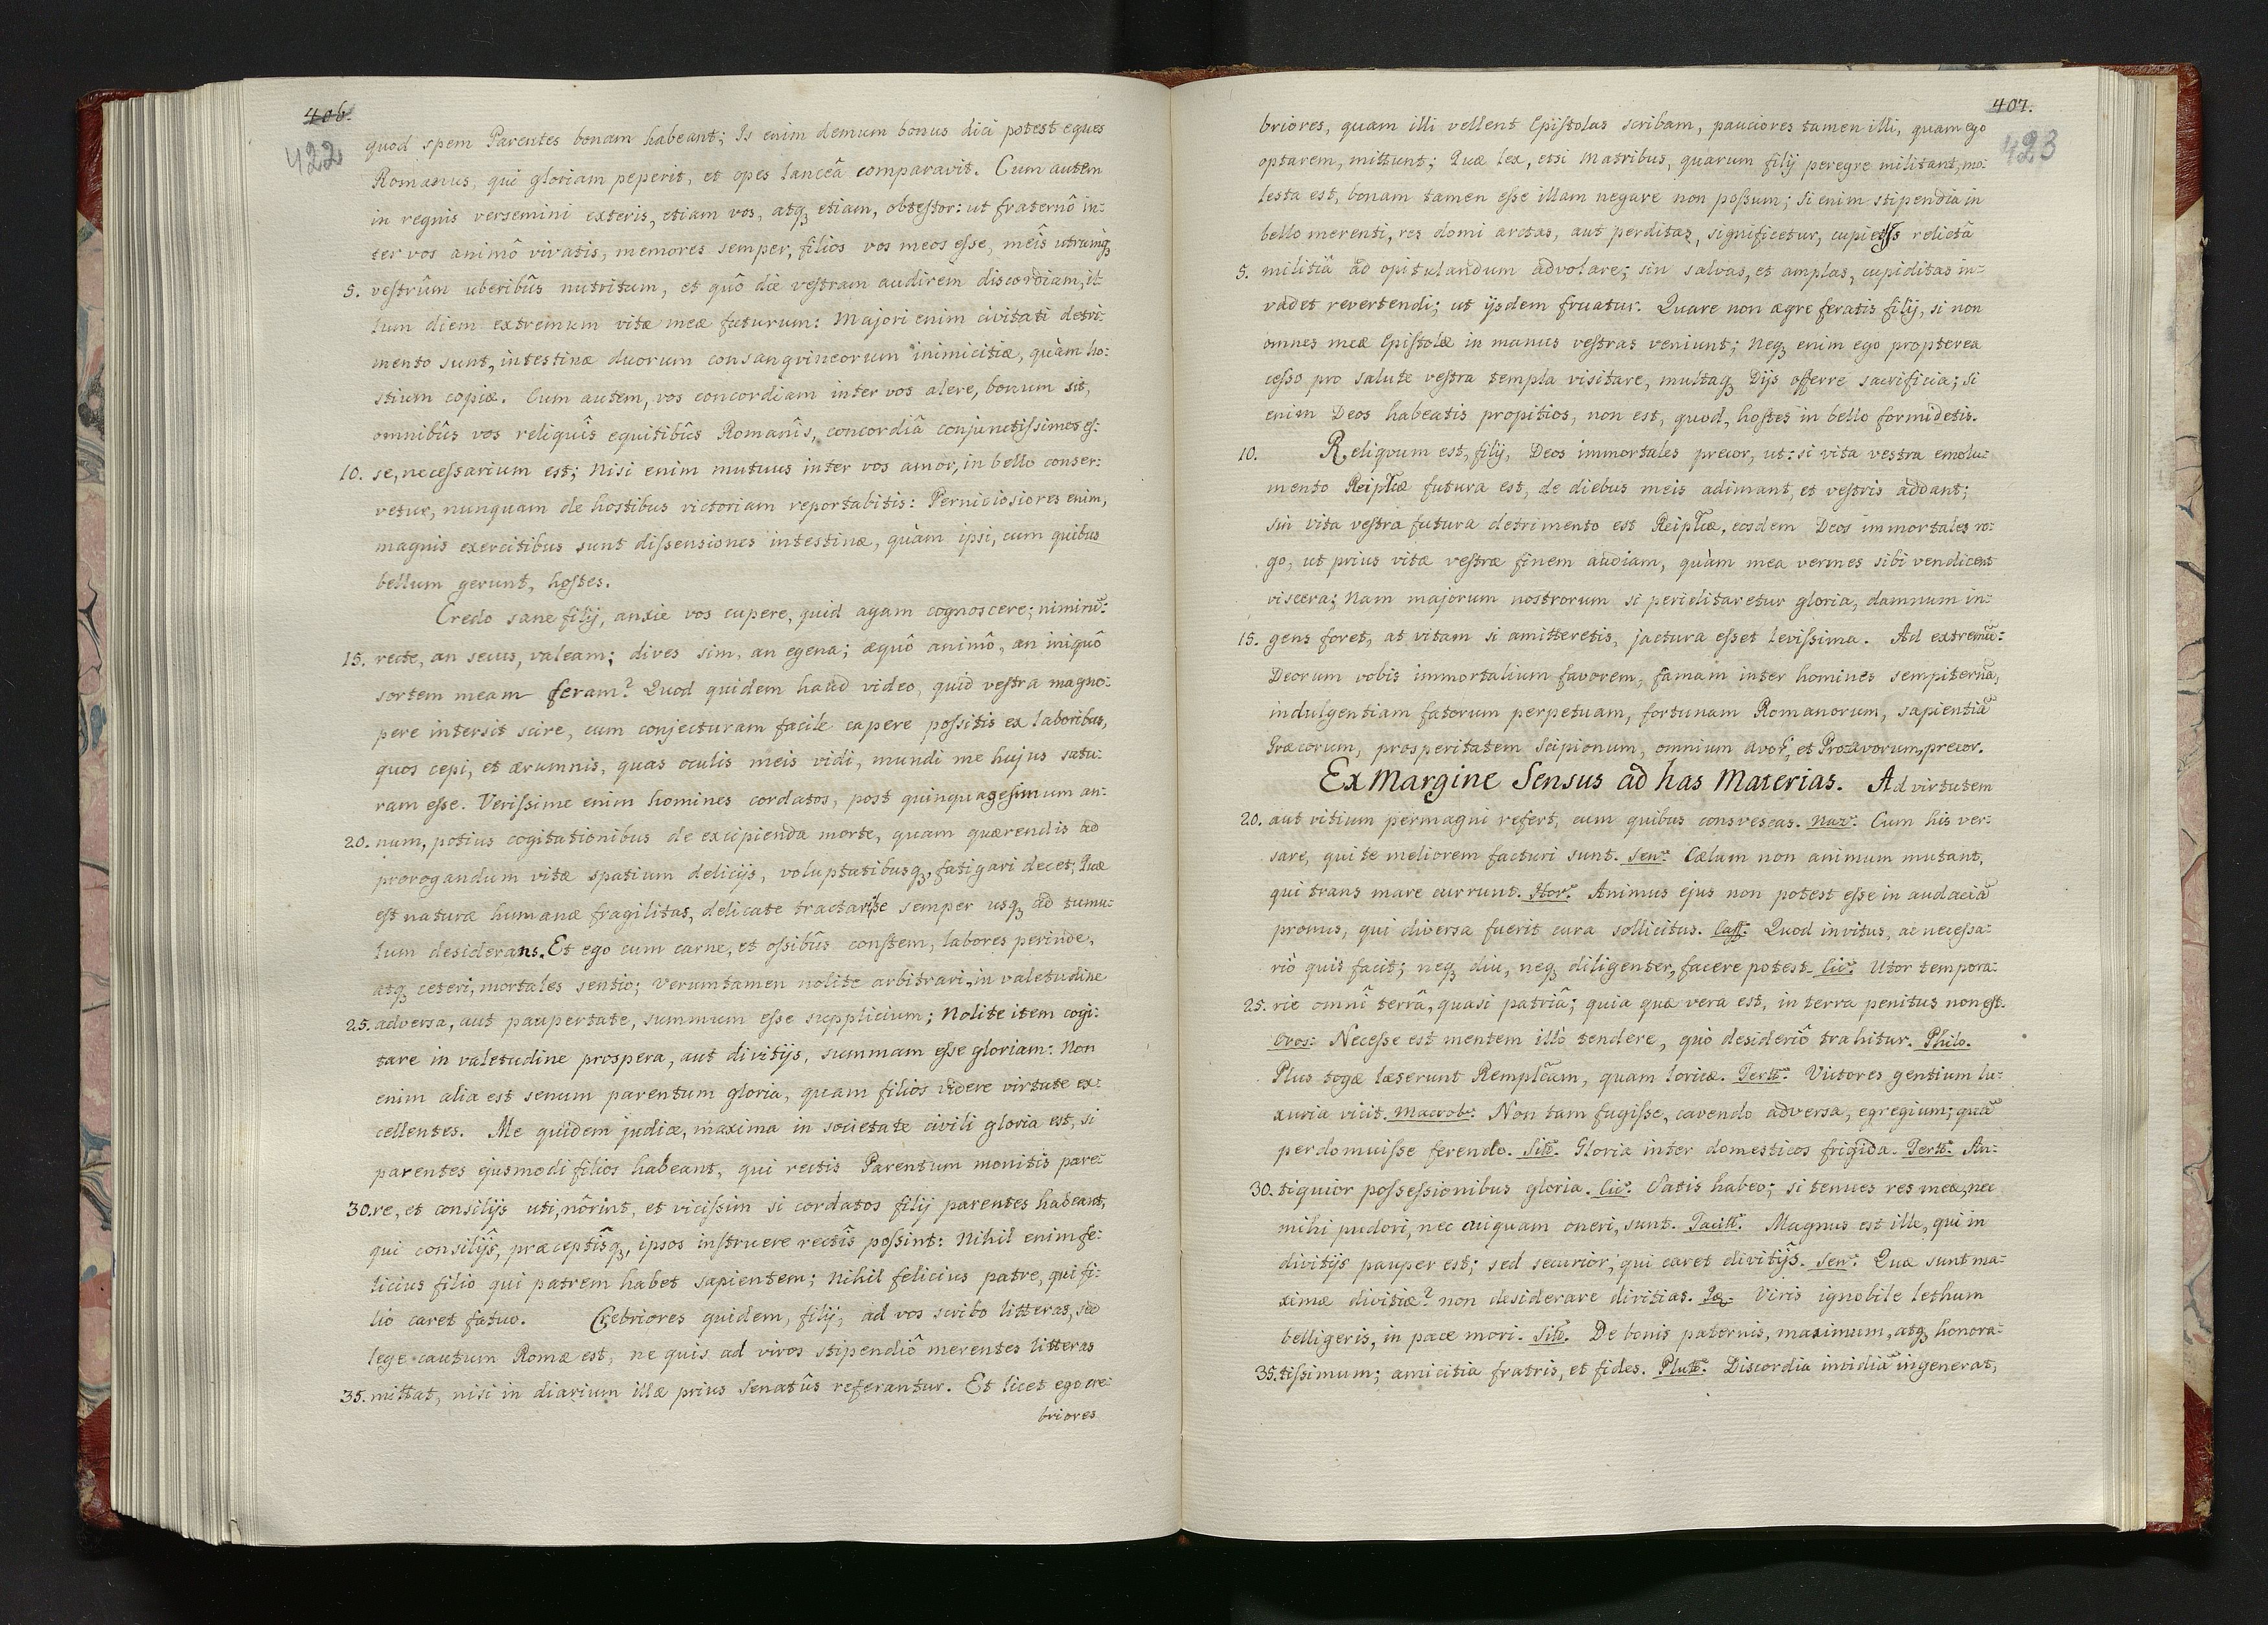 406.
422
quod spem Parentes bonam habeant; Is enim demum bonus dici potest eques
Romanus, qui gloriam peperit, et opes lanceâ comparavit. Cum autem
in regnis versemini exteris, etiam vos, atq; etiam, obtestor: ut fraternô in-
ter vos animô vivatis, memores semper, filios vos meos esse, meîs utrumq;
5. vestrûm uberibûs nutritum, et quô die vestram audirem discordiam, il-
lum diem extremum vitæ meæ futurum: Majori enim civitati detri-
mento sunt, intestinæ duorum consangvineorum inimicitiæ, quàm ho-
stium copiæ. Cum autem, vos concordiam inter vos alere, bonum sit,
omnibûs vos reliquîs equitibûs Romanîs, concordiâ conjunctissimos es-
10. se, necessarium est; Nisi enim mutuus inter vos amor, in bello conser-
vetur, nunquam de hostibus victoriam reportabitis: Perniciosiores enim,
magnis exercitibus sunt dissensiones intestinæ, quàm ipsi, cum quibus
bellum gerunt, hostes.
Credo sane filij, anxie vos cupere, quid agam cognoscere; nimirũ:
15. recte, an secus, valeam; dives sim, an egena; æquô animô, an iniquô
sortem meam feram? Quod quidem haud video, quid vestra magno-
pere intersit scire, cum conjecturam facile capere possitis ex laboribus,
quos cepi, et ærumnis, quas oculis meis vidi, mundi me hujus satu-
ram esse. Verissime enim homines cordatos, post quinquagesimum an-
20. num, potius cogitationibus de excipienda morte, quam quærendis ad
prorogandum vitæ spatium delicijs, voluptatibusq; fatigari decet; Quæ
est naturæ humanæ fragilitas, delicate tractari se semper usq; ad tumu-
lum desiderans. Et ego cum carne, et ossibûs constem, labores perinde,
atq; ceteri, mortales sentio; verumtamen nolite arbitrari, in valetudine
25. adversa, aut paupertate, summum esse supplicium; Nolite item cogi-
tare in valetudine prospera, aut divitijs, summam esse gloriam: Non
enim alia est senum parentum gloria, quam filios videre virtute ex-
cellentes. Me quidem judice, maxima in societate civili gloria est, si
parentes ejusmodi filios habeant, qui rectis Parentum monitis pare-
30. re, et consilijs uti, nôrint, et vicissim si cordatos filij parentes habeant,
qui consilijs, præceptîsq; ipsos instruere rectîs possint: Nihil enim fe-
licius filio qui patrem habet sapientem; Nihil felicius patre, qui fi-
lio caret fatuo. Crebriores quidem, filij, ad vos scribo litteras, sed
lege cautum Romæ est, ne quis ad viros stipendiô merentes litteras
35. mittat, nisi in diarium illæ prius Senatûs referantur. Et licet ego cre-
briores
407.
423
briores, quam illi vellent Epistolas scribam, pauciores tamen illi, quam ego
optarem, mittunt; Quæ lex, etsi Matribus, quarum filij peregre militant, mo-
lesta est, bonam tamen esse illam negare non possum; Si enim stipendia in
bello merenti, res domi arctas, aut perditas, significetur, cupiet is relictâ
5. militiâ ad opitulandum advolare; sin salvas, et amplas, cupiditas in-
vadet revertendi; ut ijsdem fruatur. Quare non ægre feratis filij, si non
omnes meæ Epistolæ in manus vestras veniunt; Neq; enim ego propterea
cesso pro salute vestra templa visitare, multaq; Dijs offerre sacrificia; Si
enim Deos habeatis propitios, non est, quod, hostes in bello formidetis.
10. Reliqvum est, filij, Deos immortales precor, ut: si vita vestra emolu-
mento Reiplcæ futura est, de diebus meis adimant, et vestris addant;
sin vita vestra futura detrimento est Reiplcæ, eosdem Deos immortales ro-
go, ut prius vitæ vestræ finem audiam, quàm mea vermes sibi vendicent
viscera; Nam majorum nostrorum si periclitaretur gloria, damnum in-
15. gens foret, at vitam si amitteretis, jactura esset levissima. Ad extremũ:
Deorum vobis immortalium favorem, famam inter homines sempiternã,
indulgentiam fatorum perpetuam, fortunam Romanorum, sapientiã
Græcorum, prosperitatem Scipionum, omnium avor, et Proavorum, precor.
Ex Margine Sensus ad has Materias. Ad virtutem
20. aut vitium permagni refert, cum quibus consvescas. Naz: Cum his ver-
sare, qui te meliorem facturi sunt. Sen: Cælum non animum mutant,
qui trans mare currunt. Hor: Animus ejus non potest esse in audaciã
pronus, qui diversa fuerit cura sollicitus. Cass: Quod invitus, ac necessa-
riò quis facit; neq; diu, neq; diligenter, facere potest. Cic: Utor tempora-
25. rie omnî terrâ, quasi patriâ; quia quæ vera est, in terra penitus non est.
Oros: Necesse est mentem illò tendere, quò desideriô trahitur. Philo.
Plus togæ læserunt Remplcam, quam loricæ. Tert: Victores gentium lu-
xuria vicit. Macrob: Non tam fugisse, cavendo adversa, egregium; quã
perdomuisse ferendo. Sil: Gloria inter domesticos frigida. Tert: An-
30. tiquior possessionibus gloria. Cic: Satis habeo; si tenues res meæ, nec
mihi pudori, nec cuiquam oneri, sunt. Tacit: Magnus est ille, qui in
divitijs pauper est; sed securior; qui caret divitijs. Sen: Quæ sunt ma-
ximæ divitiæ? non desiderare divitias. Viris ignobile lethum
belligeris, in pace mori. Sil: De bonis paternis, maximum, atq; honora-
35. tissimum; amicitia fratris, et fides. Plut: Discordia invidiã ingenerat,